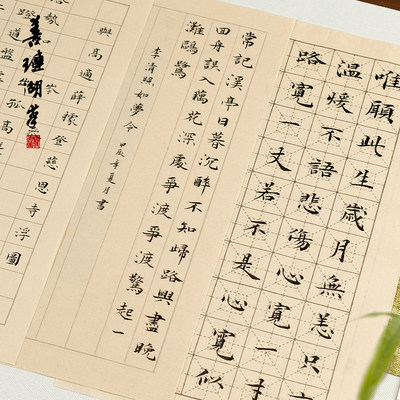 唯願此生歲月無恙只
溫暖不語悲傷心寬一寸
路寬一丈若不是心寬似
常記溪亭日暮沉醉不知歸路興盡晚
回舟誤入藕花深處爭渡爭渡驚起一
灘鷗鷺
李清照如夢令 甲辰年夏月書
與高適薛據登慈恩寺浮圖
孤高
道盤
善璉湖筆